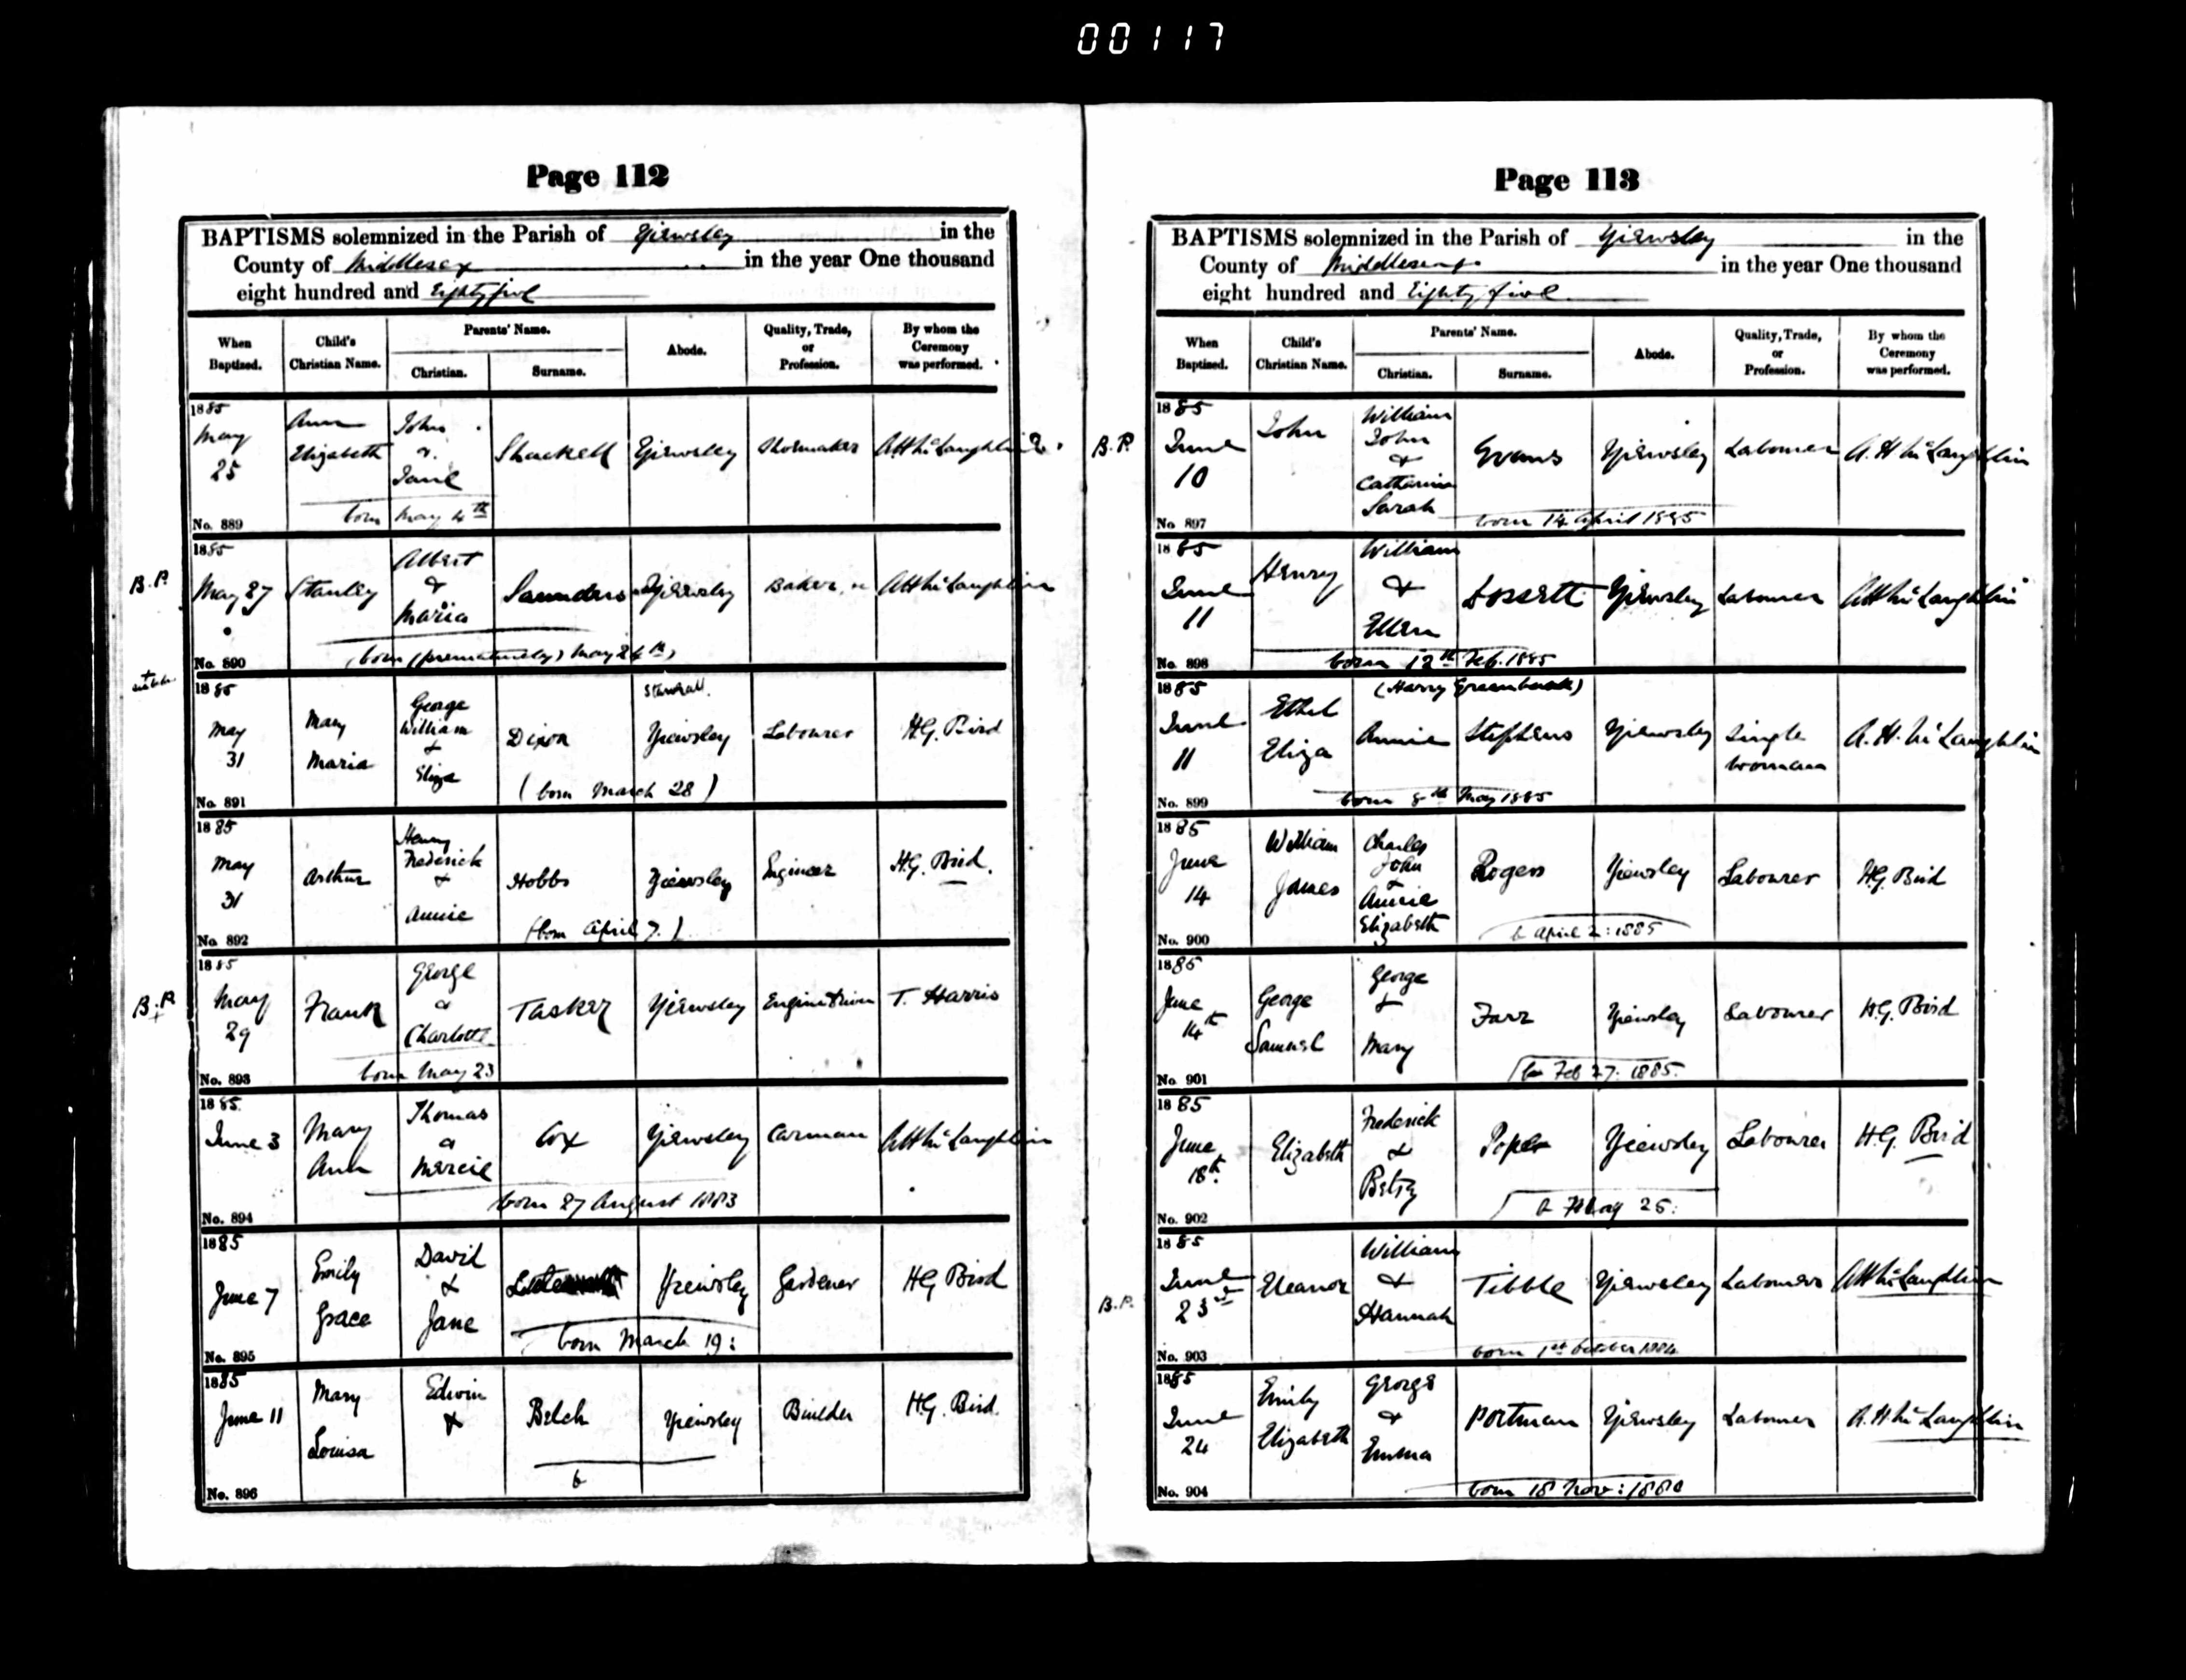 00117
Page 112
BAPTISMS solemnized in the Parish of Yiewsley in the
County of Middlesex in the year One thousand
eight hundred and Eighty five
When Baptized.
Child's Christian Name.
Parents' Name.
Christian.
Surname.
Abode.
Quality, Trade, or Profession.
By whom the Ceremony was performed.
1885 May 25 Ann Elizabeth John & Jane Shackell Yiewsley Shoemaker A H McLaughlin
born May 4th
No. 889
B.P. 1885 May 27 Stanley Albert & Maria Saunders Yiewsley Baker A H McLaughlin
(born (prematurely) May 24th)
No. 890
1885 May 31 Mary Maria George William & Eliza Dixon Yiewsley Labourer H.G. Bird
(born March 28)
No. 891
1885 May 31 Arthur Henry Frederick & Annie Hobbs Yiewsley Engineer H.G. Bird.
(born April 7.)
No. 892
B.P. 1885 May 29 Frank George & Charlotte Tasker Yiewsley Engine driver T. Harris
born May 23
No. 893
1885 June 3 Mary Ann Thomas & Mercie Cox Yiewsley Carman A H McLaughlin
born 27 August 1883
No. 894
1885 June 7 Emily Grace David & Jane Yiewsley Gardener H G Bird
born March 19:
No. 895
1885 June 11 Mary Louisa Edwin & Belch Yiewsley Builder H.G. Bird.
b
No. 896
Page 113
BAPTISMS solemnized in the Parish of Yiewsley in the
County of Middlesex in the year One thousand
eight hundred and Eighty five
When Baptized.
Child's Christian Name.
Parents' Name.
Christian.
Surname.
Abode.
Quality, Trade, or Profession.
By whom the Ceremony was performed.
B.P. 1885 June 10 John William John & Catherine Sarah Evans Yiewsley Labourer A. H McLaughlin
born 14 April 1885
No. 897
1885 June 11 Henry William & Ellen Dossett Yiewsley Labourer A H McLaughlin
born 12th Feb. 1885
No. 898
(Harry Greenbank)
1885 June 11 Ethel Eliza Annie Stephens Yiewsley Single woman A. H. McLaughlin
born 8th May 1885
No. 899
1885 June 14 William James Charles John & Annie Elizabeth Rogers Yiewsley Labourer H.G. Bird
b April 2: 1885
No. 900
1885 June 14th George Samuel George & Mary Farr Yiewsley Labourer H.G. Bird
b Feb 27: 1885.
No. 901
1885 June 18th Elizabeth Frederick & Betsy Pope Yiewsley Labourer H.G. Bird
b May 25:
No. 902
B.P. 1885 June 23rd Eleanor William & Hannah Tibble Yiewsley Labourer A H McLaughlin
born 1st October 1884
No. 903
1885 June 24 Emily Elizabeth George & Emma Portman Yiewsley Labourer A. H McLaughlin
born 18 Nov: 1880
No. 904